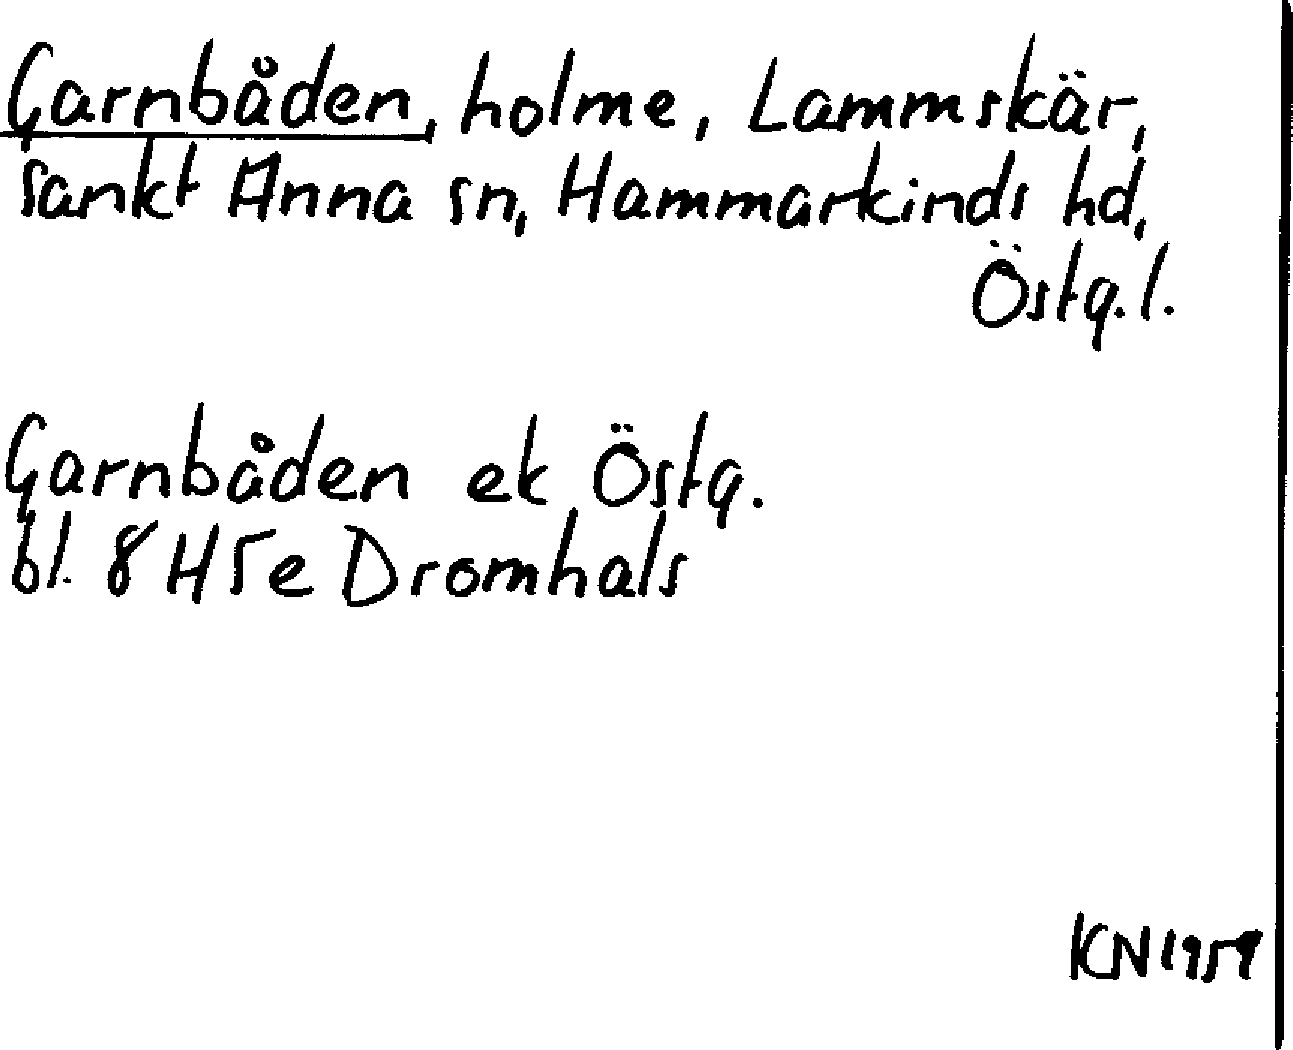 Garnbåden, holme, Lammskär,
Sankt Anna sn, Hammarkinds hd,
Östg.l.
Garnbåden ek Östg.
bl. 8H5e Dromhals
KN1959